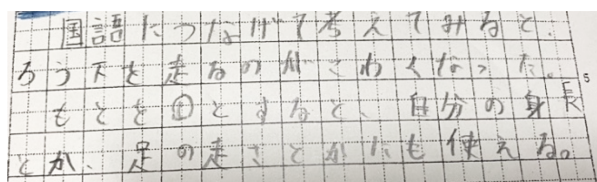 国語につなげて考えてみると、
ろう下を走るのがこわくなった。
もとを①とすると、自分の身長
とか、足の速さとかにも使える。
5